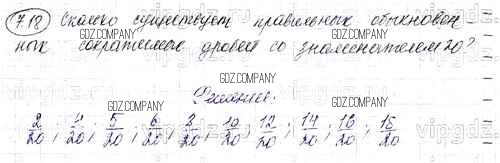 7.18 Сколько существует правильных обыкновен
ных сократимых дробей со знаменателем 20?
GDZ.COMPANY GDZ.COMPANY
GDZ.COMPANY
Решение:
GDZ.COMPANY GDZ.COMPANY
2/20; 4/20; 5/20; 6/20; 8/20; 10/20; 12/20; 14/20; 16/20; 18/20
GDZ.COMPANY
vipgdz